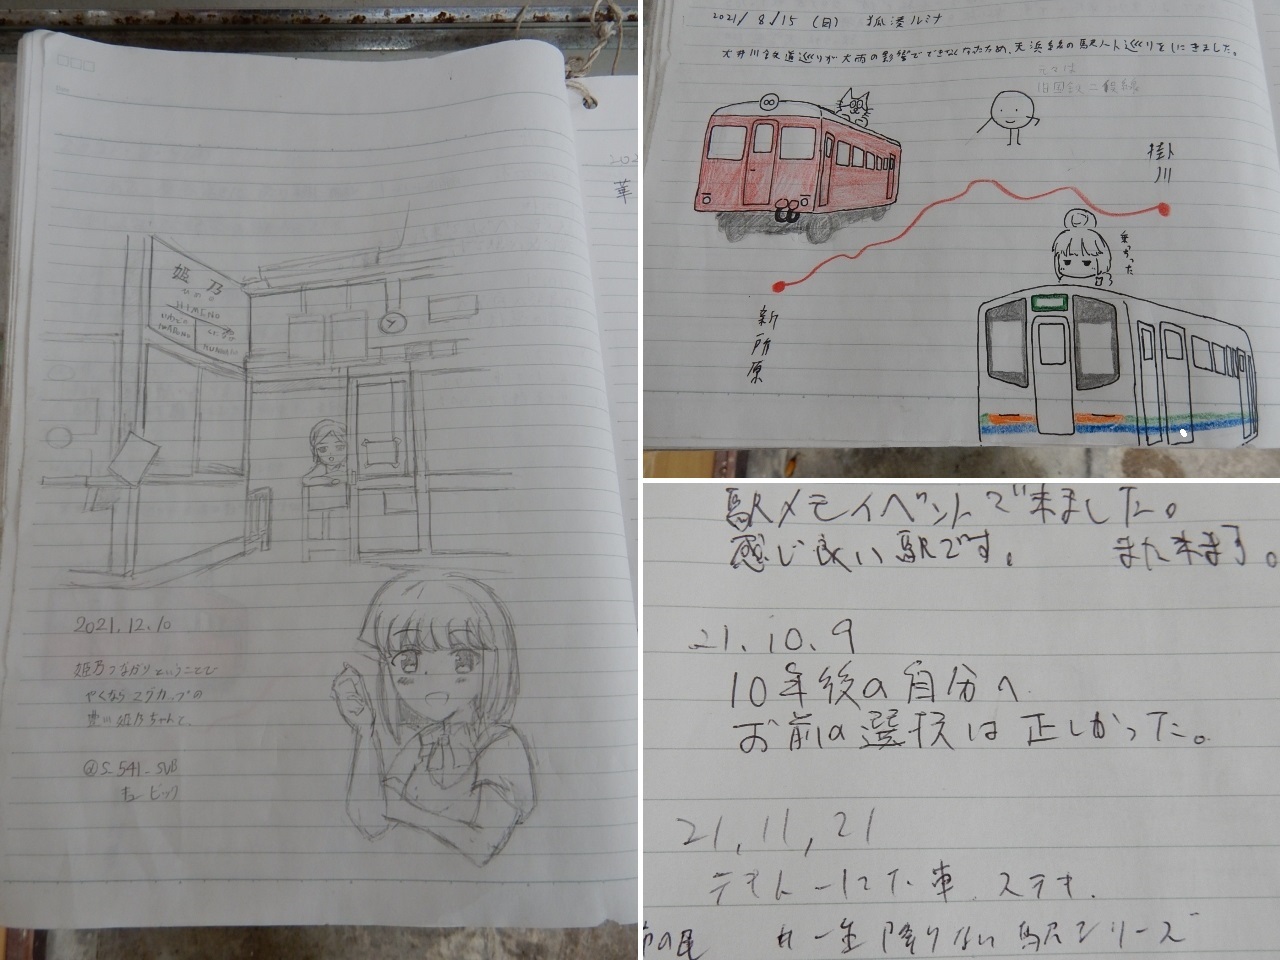 姫乃
ひめの
HIMENO
2021.12.10
姫乃つながりということで
やくならマグカップの
豊川姫乃ちゃんで、
@S_541_SVB
キュービック
2021/8/15 (日) 狐湊ルミナ
大井川鉄道巡りが大雨の影響でできなくなったため、天浜線の駅ノート巡りをしにきました。
元々は
旧国鉄二俣線
掛川
乗かった
新所原
駅メモイベントで来ました。
感じ良い駅です。 また来ます。
21.10.9
10年後の自分へ
お前の選択は正しかった。
21,11,21
一生降りない駅シリーズ